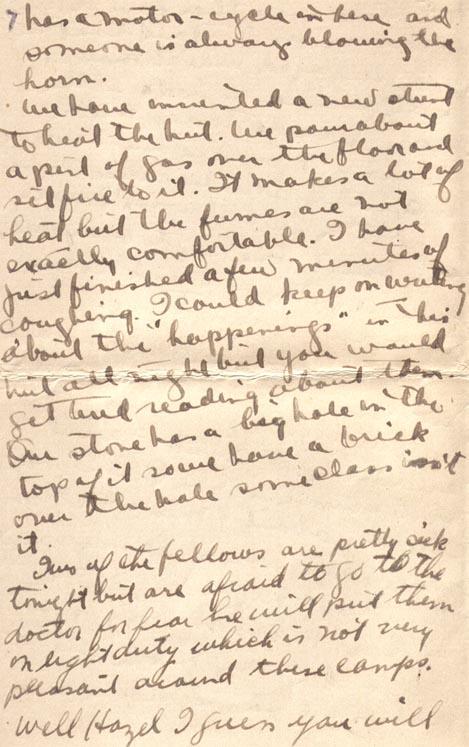 7 has a motor-cycle in here and
someone is always blowing the
horn.
We have invented a new stunt
to heat the hut. We pour about
a pint of gas over the floor and
set fire to it. It makes a lot of
heat but the fumes are not
exactly comfortable. I have
just finished a few minutes of
coughing. I could keep on writing
about the "happenings" in this
hut all night but you would
get tired reading about them.
Our stove has a big hole in the
top of it so we have a brick
over the hole some class isn't
it.
Two of the fellows are pretty sick
tonight but are afraid to go to the
doctor for fear he will put them
on light duty which is not very
pleasant around these camps.
Well Hazel I guess you will